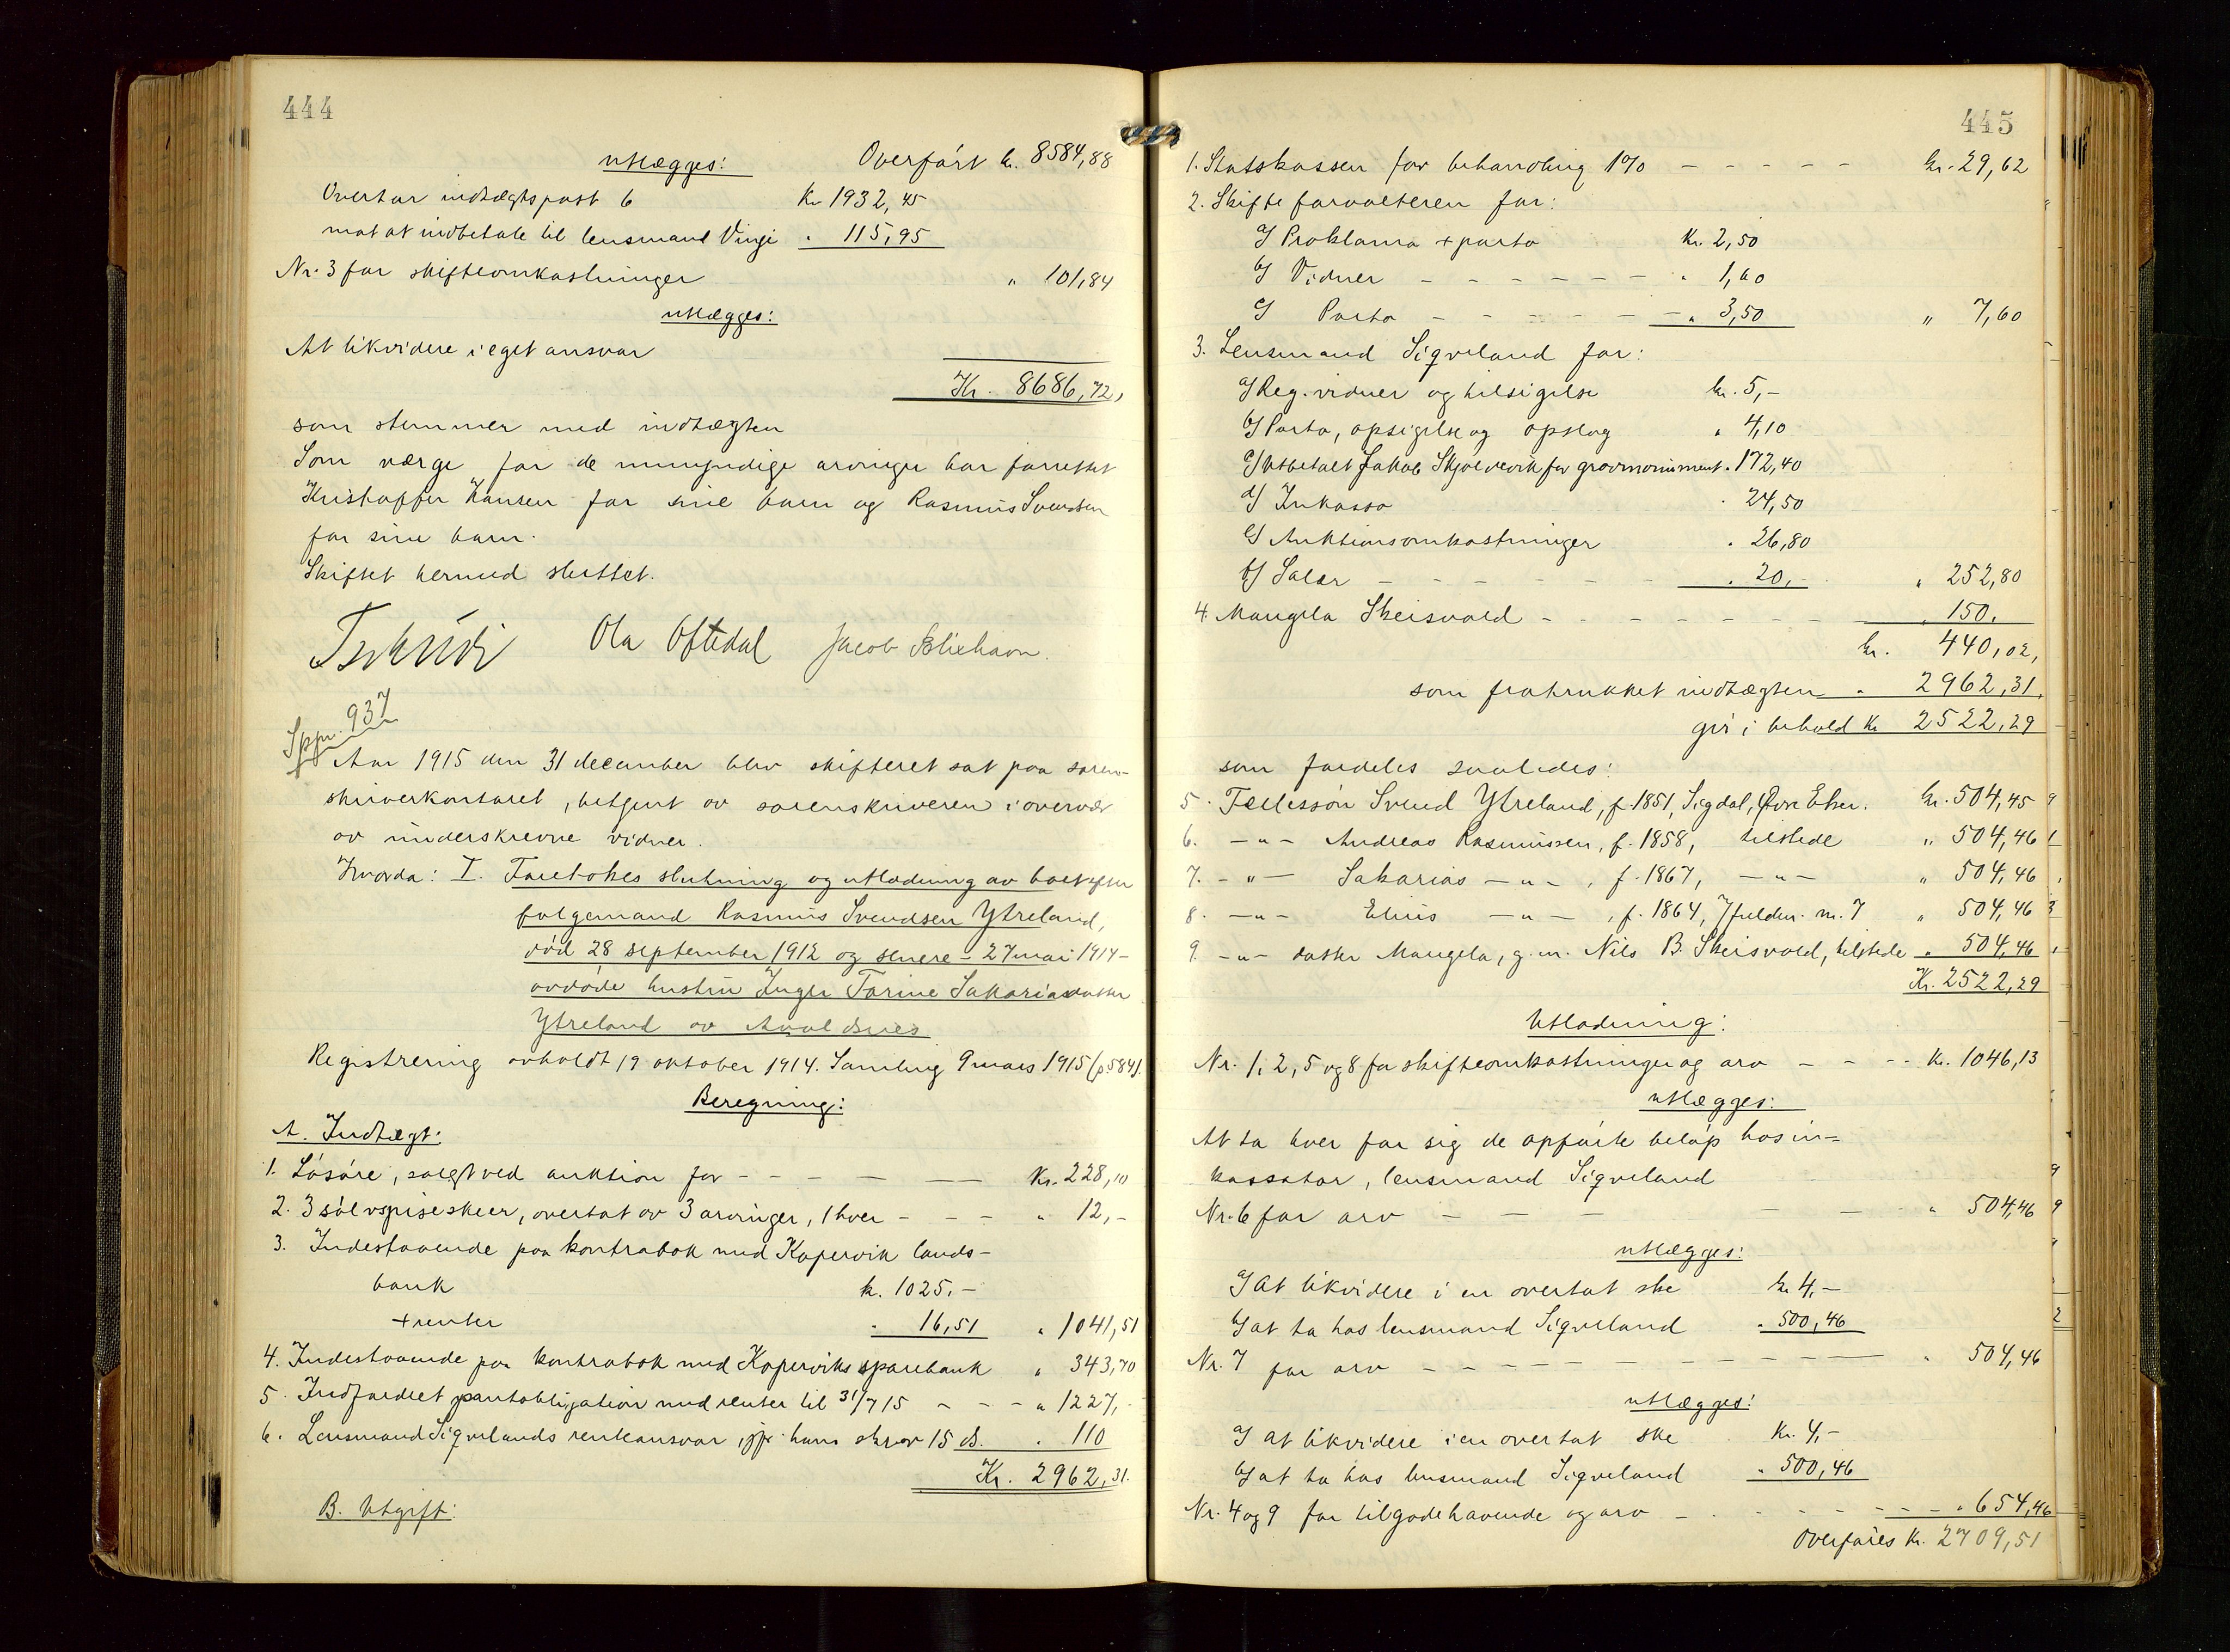 444
utlægges: Overført kr. 8584,88
Overtar indtægtspost 6 Kr 1932,45
mot at indbetale til lensmand Vinje " 115,95
Nr. 3 for skifteomkostninger " 101,84
utlægges:
At likvidere i eget ansvar
Kr. 8686,72,
som stemmer med indtægten
Som værge for de umyndige arvinger har forrettet
Kristoffer Hansen for sine barn og Rasmus Svendsen
for sine barn.
Skiftet hermed sluttet.
Tschudi Ola Oftedal Jacob
Sppr. 937
Aar 1915 den 31 december blev skifteret sat paa soren-
skriverkontoret, betjent av sorenskriveren i overvær
av underskrevne vidner.
Hvorda: I. Foretokes slutning og utlodning av boet efter
folgemand Rasmus Svendsen Ytreland,
død 28 september 1912 og senere - 27 mai 1914 -
avdøde hustru Inger Torine Sakariasdatter
Ytreland av Avaldsnes
Registrering avholdt 19 oktober 1914. Samling 9 mars 1915 (p. 584).
Beregning:
A. Indtægt:
1. Løsøre, solgt ved auktion for - - - - — Kr. 228,10
2. 3 sølvspiseskeer, overtat av 3 arvinger, 1 hver - - - " 12,-
3. Indestaaende paa kontrabok med Kopervik lands-
bank kr. 1025,-
+ renter " 16,51 " 1041,51
4. Indestaaende paa kontrabok med Koperviks sparebank " 343,70
5. Indfordret pantobligation med renter til 31/7 15 - - - " 1227,-
6. Lensmand Sigvelands renteansvar, jfr. hans skriv 15 ds. " 110
Kr. 2962,31.
B. Utgift:
445
1. Statskassen for behandling 1% - - - - - kr. 29,62
2. Skifteforvalteren for:
a/ Proklama + porto Kr. 2,50
b/ Vidner - - - - - - " 1,60
c/ Porto - - - - - - " 3,50 " 7,60
3. Lensmand Sigveland for:
a/ Reg. vidner og tilsigelse kr. 5,-
b/ Porto, opsigelse og opslag " 4,10
c/ Utbetalt Jakob Skjølvevik for gravmonument " 172,40
d/ Inkasso " 24,50
e/ Auktionsomkostninger " 26,80
f/ Salær - - - - - - " 20,- " 252,80
4. Mangela Skeisvold - - - - - - - " 150.
kr. 440,02,
som fratrukket indtægten " 2962,31.
gir i behold Kr 2522,29
som fordeles saaledes:
5. Fællessøn Svend Ytreland, f. 1851, Sigdal, Øvre Eker. kr. 504,45
6. -"- Andreas Rasmussen, f. 1858, tilstede " 504,46
7. -"- Sakarias -"-, f. 1867, -"- " 504,46
8. -"- Elius -"-, f. 1864, Ifølden. nr. 7 " 504,46
9. -"- datter Mangela, g. m. Nils B. Skeisvold, tilstede " 504,46
Kr. 2522,29
Utlodning:
Nr. 1, 2, 5 og 8 for skifteomkostninger og arv - - - Kr. 1046,13
utlægges:
At ta hver for sig de opførte beløp hos in-
kassator, lensmand Sigveland
Nr. 6 for arv - - - - - " 504,46
utlægges:
a/ at likvidere i en overtat ske kr 4,-
b/ at ta hos lensmand Sigveland " 500,46
Nr. 7 for arv - - - - - - - - " 504,46
utlægges:
a/ at likvidere i en overtat ske Kr. 4,-
b/ at ta hos lensmand Sigveland " 500,46
Nr. 4 og 9 for tilgodehavende og arv - - - - - " 654,46
Overføres Kr. 2709,51